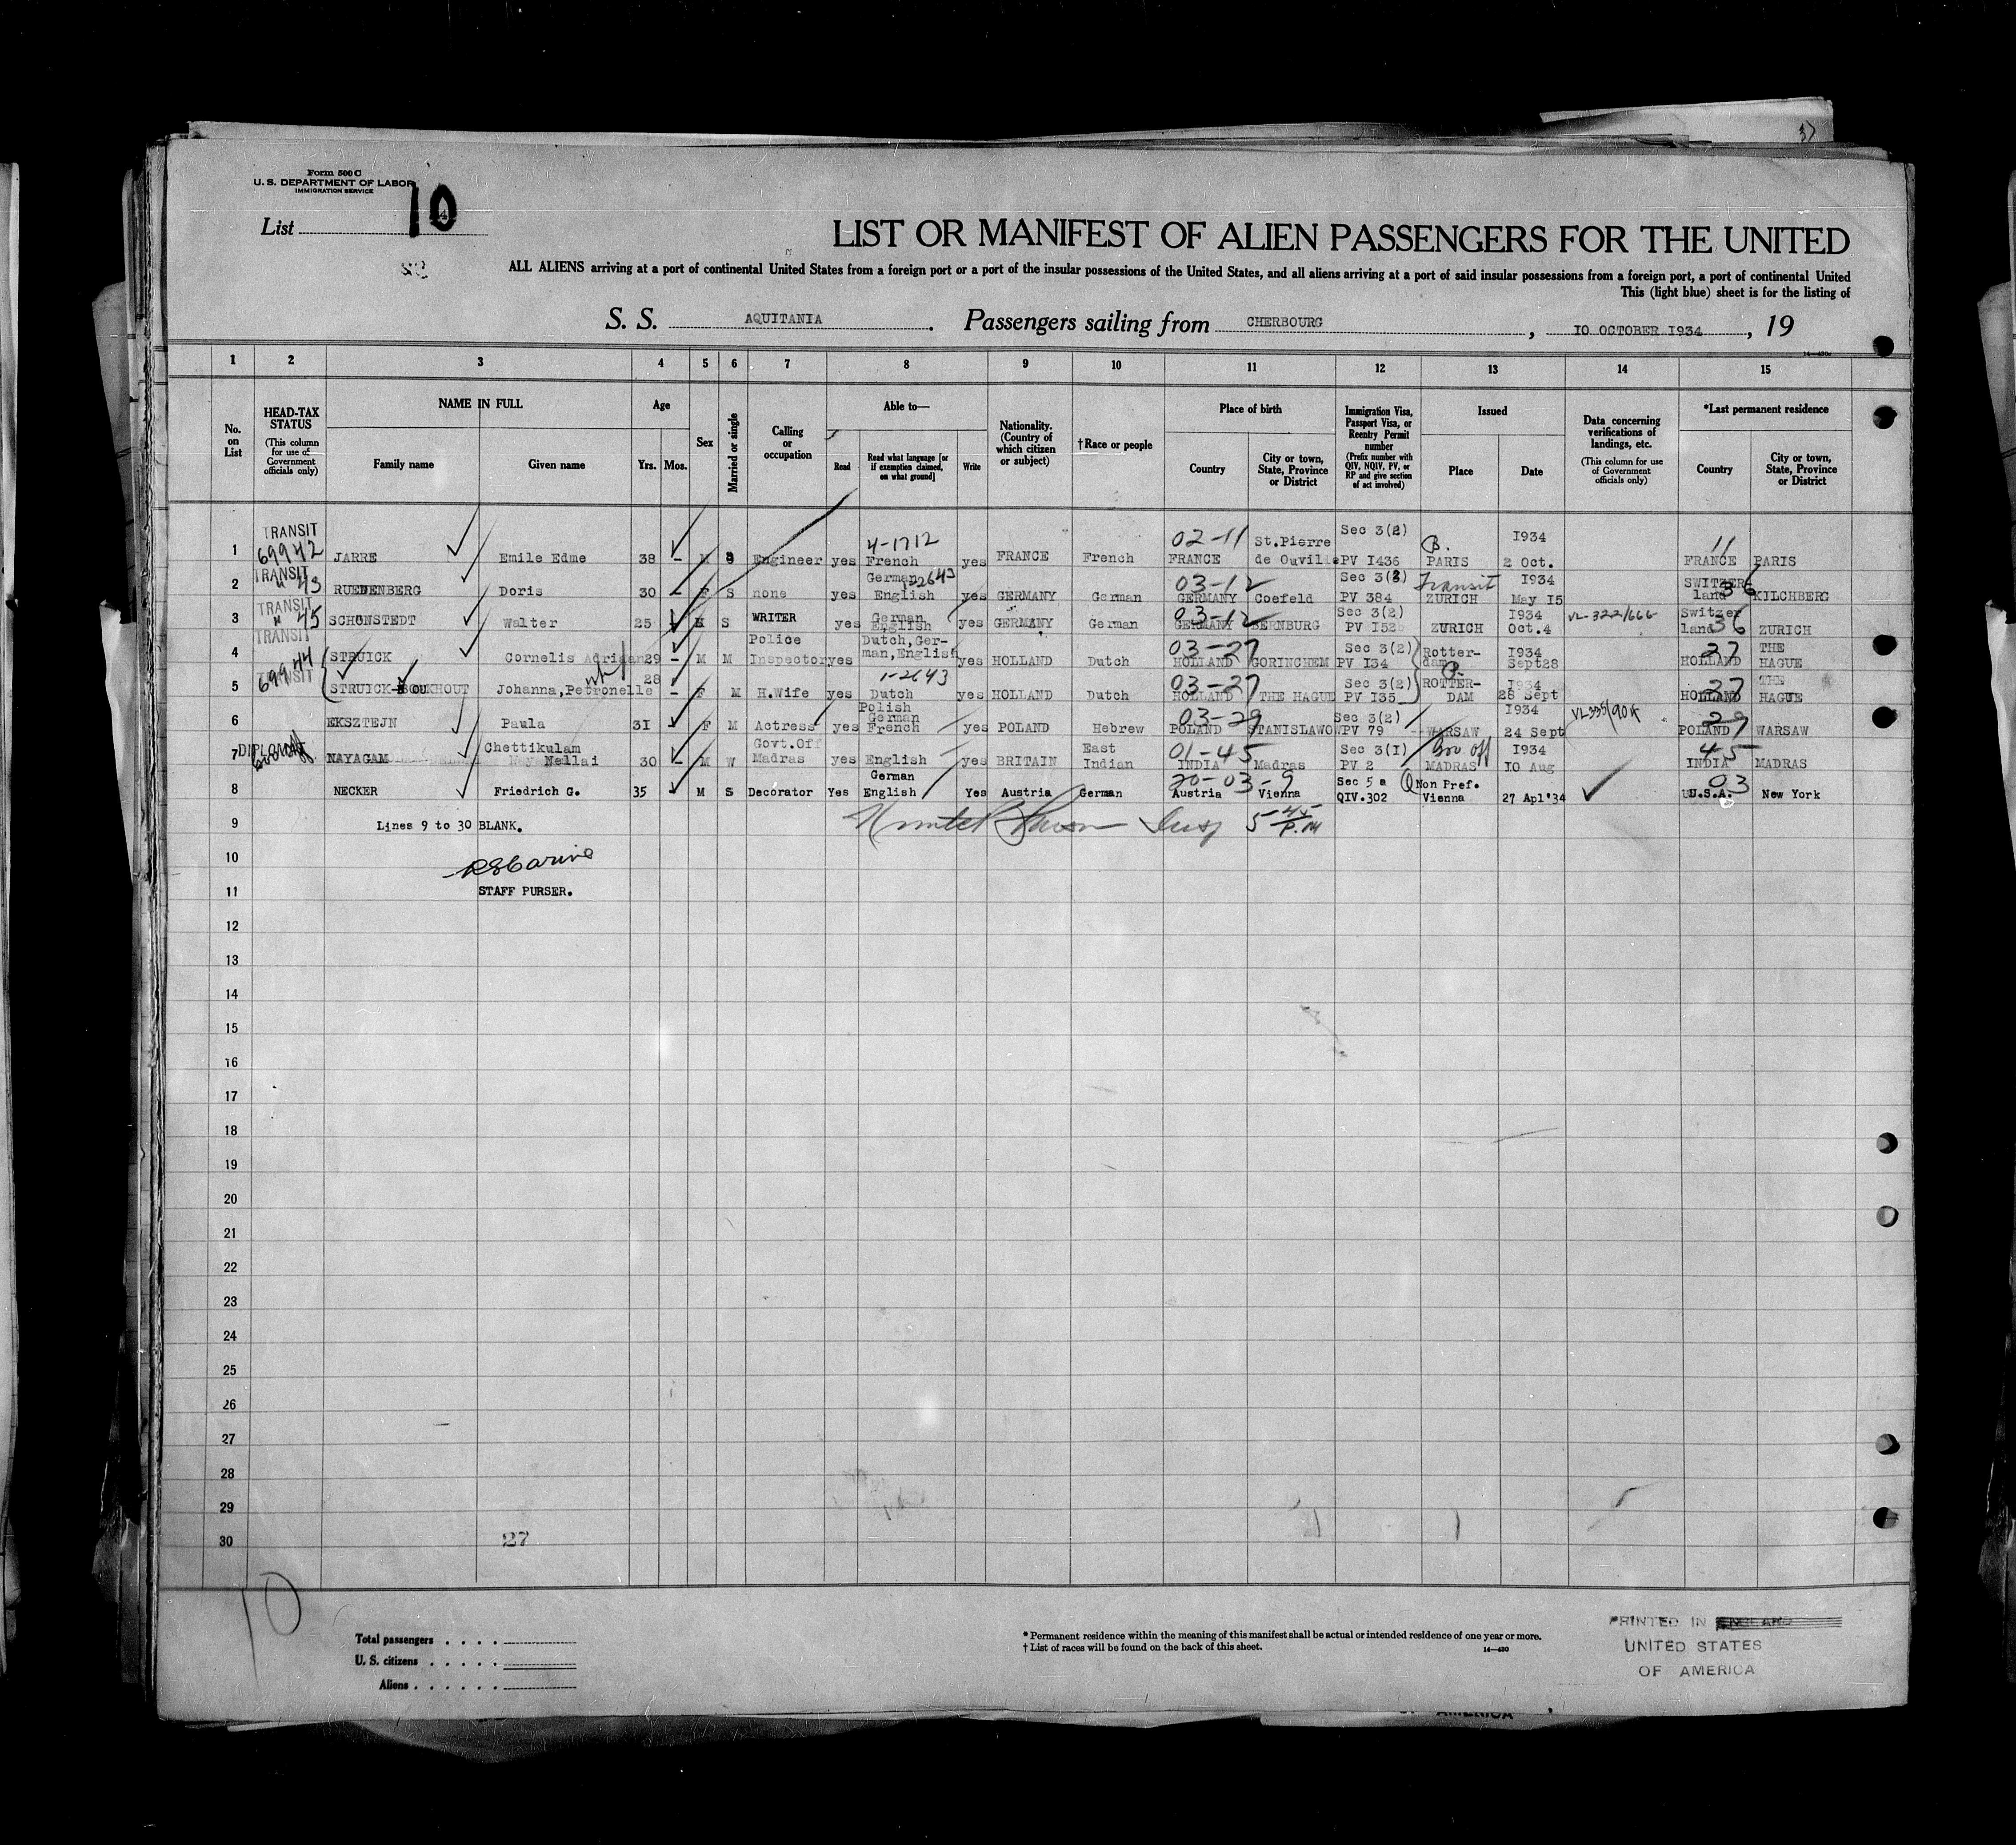 37
Form 500 C
U. S. DEPARTMENT OF LABOR
IMMIGRATION SERVICE
List 10
LIST OR MANIFEST OF ALIEN PASSENGERS FOR THE UNITED
ALL ALIENS arriving at a port of continental United States from a foreign port or a port of the insular possessions of the United States, and all aliens arriving at a port of said insular possessions from a foreign port, a port of continental United
This (light blue) sheet is for the listing of
S. S. AQUITANIA. Passengers sailing from CHERBOURG, 10 OCTOBER 1934, 19
1 2 3 4 5 6 7 8 9 10 11 12 13 14 15
No. on List
HEAD-TAX STATUS (This column for use of Government officials only)
NAME IN FULL Family name Given name
Age Yrs. Mos.
Sex
Married or single
Calling or occupation
Able to— Read Read what language [or if exemption claimed, on what ground] Write
Nationality. (Country of which citizen or subject)
†Race or people
Place of birth Country City or town, State, Province or District
Immigration Visa, Passport Visa, or Reentry Permit number (Prefix number with QIV, NQIV, PV, or RP and give section of act involved)
Issued Place Date
Data concerning verifications of landings, etc. (This column for use of Government officials only)
*Last permanent residence Country City or town, State, Province or District
1 TRANSIT 69942 JARRE Emile Edme 38 - M S Engineer yes 4-1712 French yes FRANCE French 02-11 FRANCE St.Pierre de Ouville Sec 3(2) PV I436 PARIS I934 2 Oct. 11 FRANCE PARIS
2 TRANSIT " 43 RUEDENBERG Doris 30 - F S none yes German English yes GERMANY German 03-12 GERMANY Coefeld Sec 3(3) PV 384 Transit ZURICH I934 May I5 SWITZERland 36 KILCHBERG
3 TRANSIT " 45 SCHONSTEDT Walter 25 - M S WRITER yes German English yes GERMANY German 03-12 GERMANY BERNBURG Sec 3(2) PV I52 ZURICH I934 Oct.4 VL-322/666 Switzerland 36 ZURICH
4 TRANSIT 69944 STRUICK Cornelis Adriaan 29 - M M Police Inspector yes Dutch, German, English yes HOLLAND Dutch 03-27 HOLLAND GORINCHEM Sec 3(2) PV I34 Rotterdam I934 Sept28 27 HOLLAND THE HAGUE
5 TRANSIT STRUICK-BOUKHOUT Johanna,Petronelle 28 - F M H.Wife yes 1-2643 Dutch yes HOLLAND Dutch 03-27 HOLLAND THE HAGUE Sec 3(2) PV I35 ROTTERDAM I934 28 Sept 27 HOLLAND THE HAGUE
6 EKSZTEJN Paula 31 F M Actress yes Polish German French yes POLAND Hebrew 03-29 POLAND STANISLAWOW Sec 3(2) PV 79 WARSAW I934 24 Sept 29 POLAND WARSAW
7 DIPLOMAT NAYAGAM Chettikulam Nellai 30 - M W Govt.Off Madras yes English yes BRITAIN East Indian 01-45 INDIA Madras Sec 3(I) PV 2 Gov off MADRAS I934 IO Aug 45 INDIA MADRAS
8 NECKER Friedrich G. 35 M S Decorator Yes German English Yes Austria German 20-03-9 Austria Vienna Sec 5 a QIV.302 Non Pref. Vienna 27 Apl'34 03 U.S.A. New York
9 Lines 9 to 30 BLANK. Insp 5 45 P.M
10
11 STAFF PURSER.
12
13
14
15
16
17
18
19
20
21
22
23
24
25
26
27
28
29
30 27
10
Total passengers . . . .
U. S. citizens . . . . .
Aliens . . . . . .
* Permanent residence within the meaning of this manifest shall be actual or intended residence of one year or more.
† List of races will be found on the back of this sheet. 14—430
PRINTED IN ENGLAND
UNITED STATES
OF AMERICA
OF AMERICA